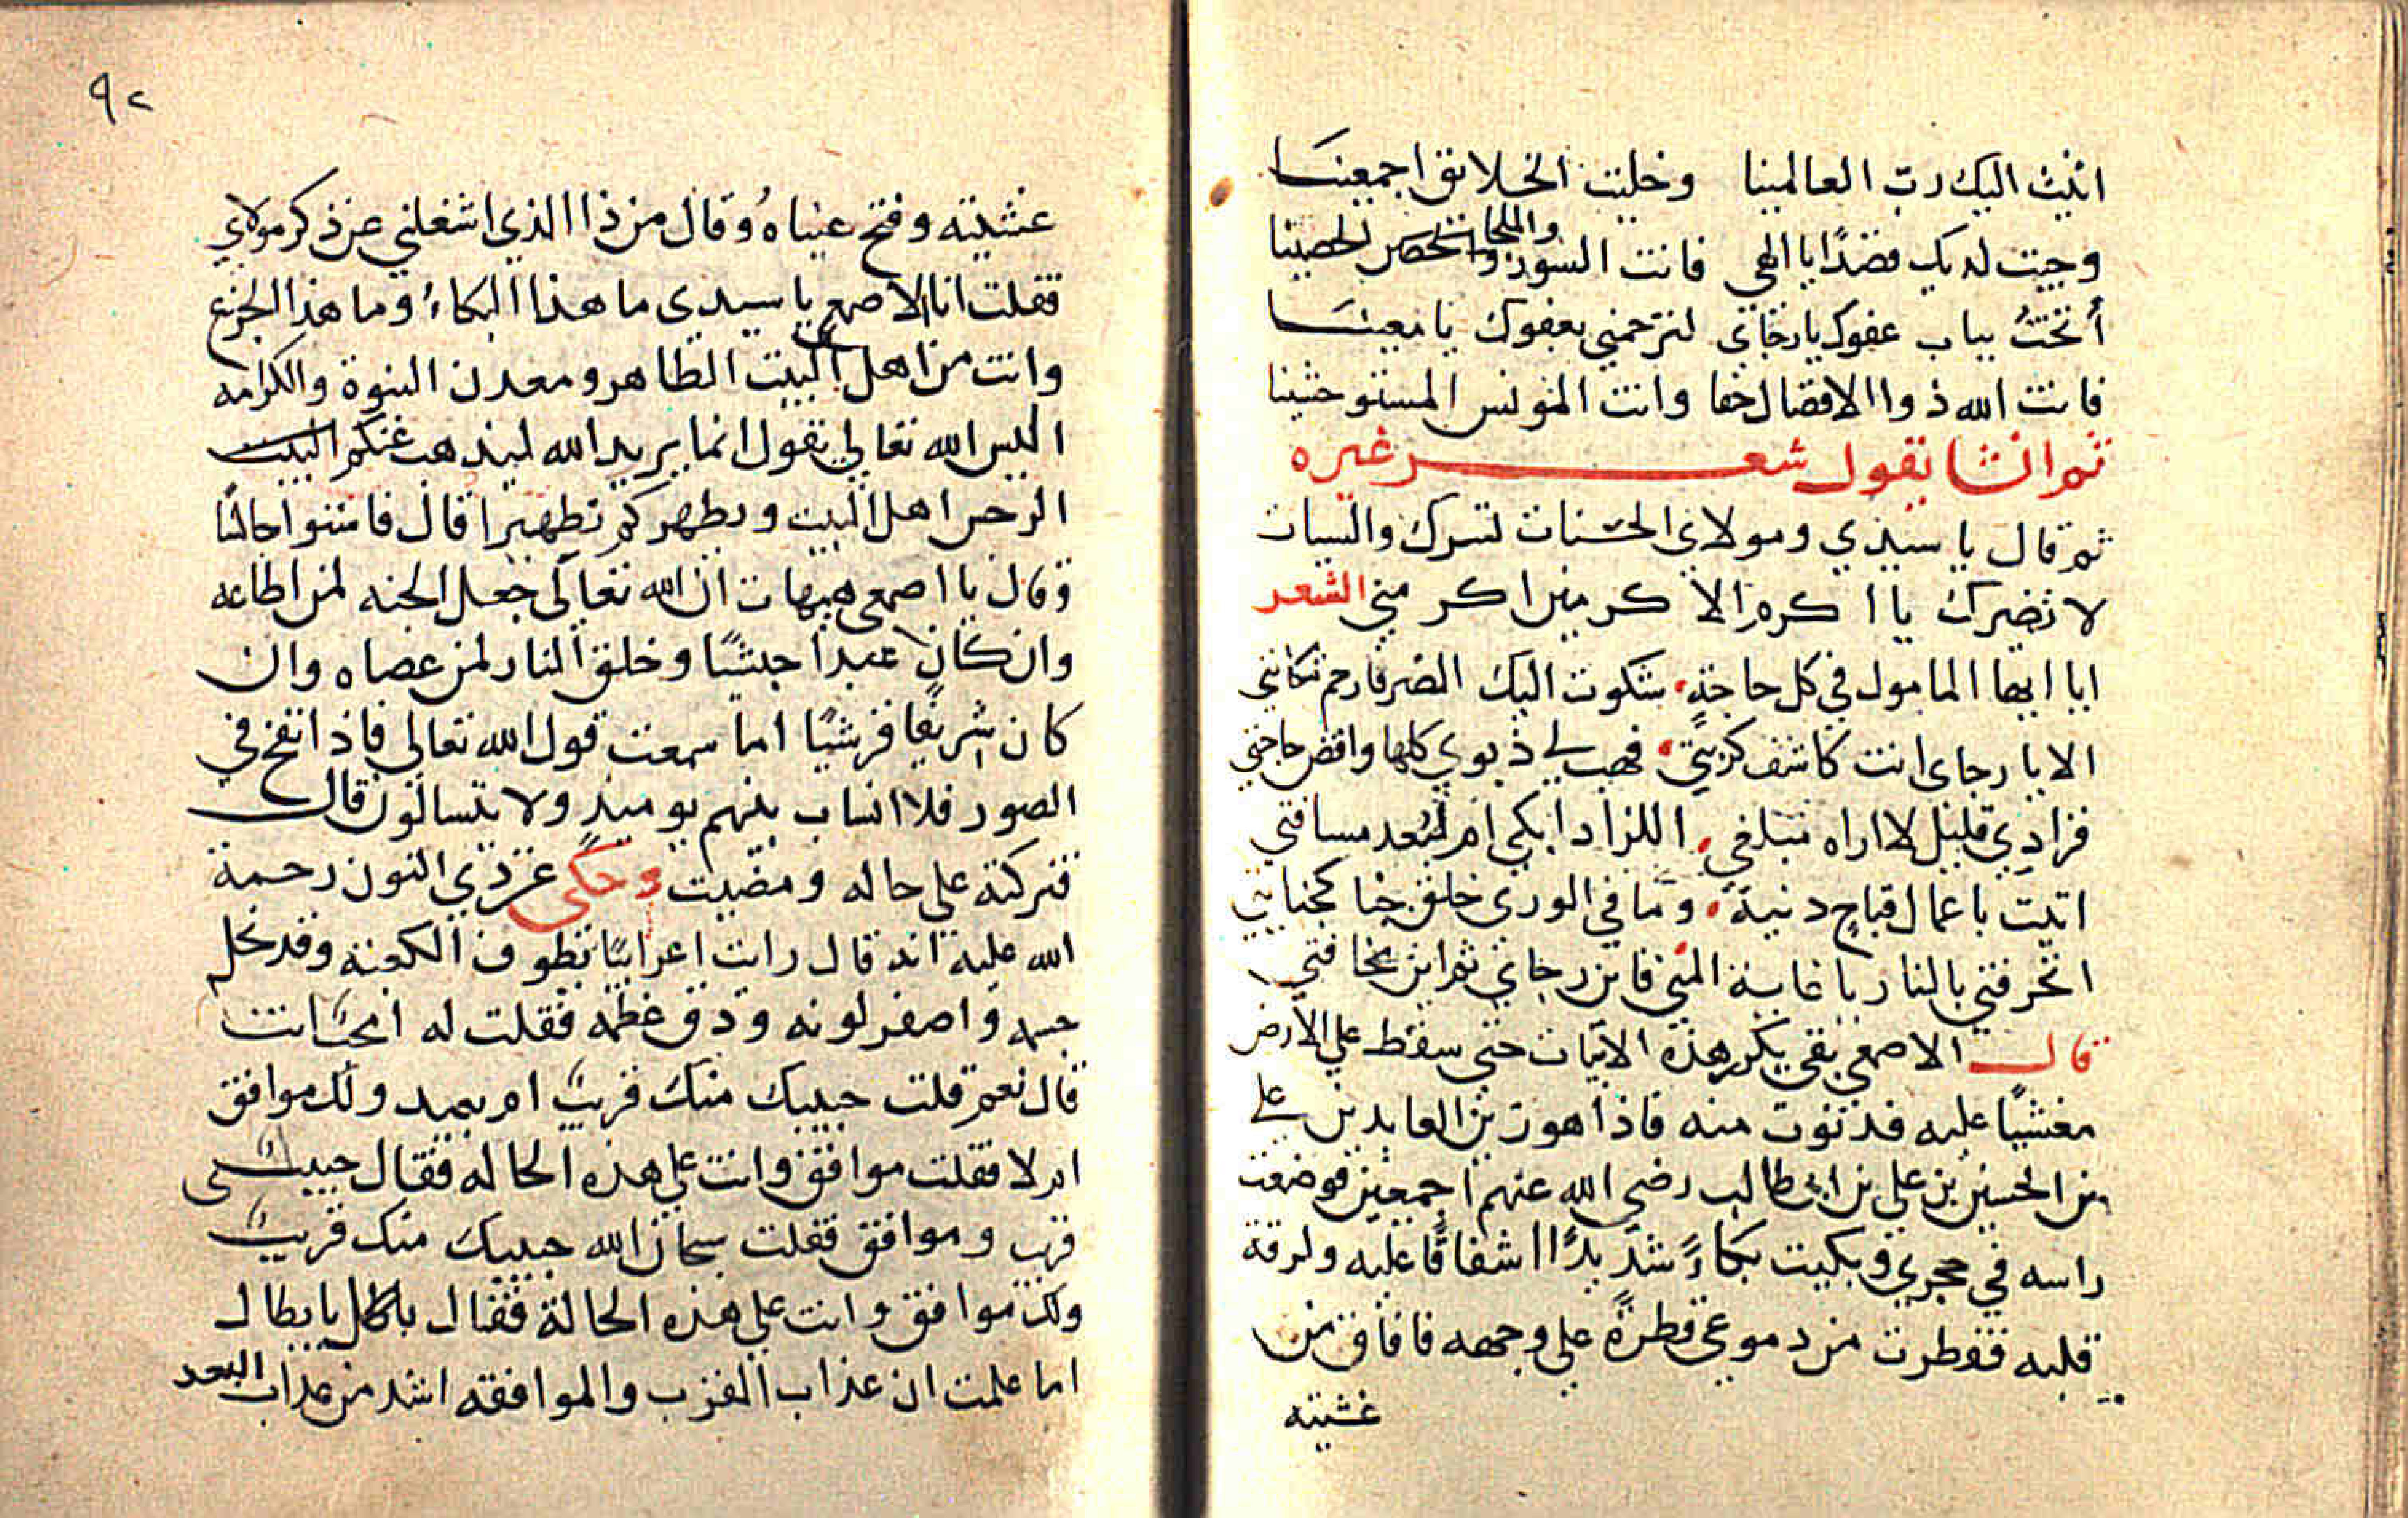 اتيت اليك رب العالمينا وخليت الخلايق اجمعينا
وجيت لديك قصدا يا الهي فانت السور والملجا الحصينا
أنختُ بباب عفوك يا رجاي لترحمني بعفوك يا معينا
فانت الله ذوا الافضال حقا وانت المونس المستوحشينا
ثم انشا يقول شعر غيره
ثم قال يا سيدي ومولاي الحسنات تسرك والسيات
لا تضرك يا اكرم الاكرمين اكرمني الشعر
ايا ايها المامول في كل حاجةٍ شكوت اليك الضر فارحم شكايتي
الا يا رجاي انت كاشف كربتي فهب لي ذنوبي كلها واقض حاجتي
فزادي قليل لا اراه مبلغي اللزاد ابكي ام لبُعد مسافتي
اتيت باعمال قباحٍ دنية وما في الورى خلق جنا كجنايتي
اتحرقني بالنار يا غاية المنى فاين رجاي ثم اين مخافتي
قال الاصمعي بقي يكرر هذه الابيات حتى سقط على الارض
مغشيًا عليه فدنوت منه فاذا هو زين العابدين علي
بن الحسين بن علي بن ابي طالب رضي الله عنهم اجمعين فوضعت
راسه في حجري وبكيت بكاءً شديدًا اشفاقًا عليه ولرقة
قلبه فقطرت من دموعي قطرةً على وجهه فافاق من
غشيته
٩٢
غشيته وفتح عيناهُ وقال من ذا الذي اشغلني عن ذكر مولاي
فقلت انا الاصمعي يا سيدي ما هذا البكاءُ وما هذا الجزع
وانت من اهل البيت الطاهر ومعدن النبوة والكرامه
اليس الله تعالى يقول انما يريد الله ليذهب عنكم البيت
الرجس اهل البيت ويطهركم تطهيرا قال فاستوا جالسًا
وقال يا اصمعي هيهات ان الله تعالى جعل الجنه لمن اطاعه
وان كان عبدا حبشيًا وخلق النار لمن عصاه وان
كان شريفًا قرشيًا اما سمعت قول الله تعالى فاذا نفخ في
الصور فلا انساب بينهم يوميذٍ ولا يتسالون قال
فتركته على حاله ومضيت وحكي عن ذي النون رحمة
الله عليه انه قال رايت اعرابيًا يطوف الكعبة وقد نحل
جسمه واصفر لونه ودق عظمه فقلت له امحبٌ انت
قال نعم قلت حبيبك منك قريبٌ ام بعيد ولك موافق
ام لا فقلت موافق وانت على هذه الحاله فقال حبيبي
قريب وموافق فقلت سبحان الله حبيبك منك قريبٌ
ولك موافق وانت على هذه الحالة فقال يا بطال
اما علمت ان عذاب القرب والموافقه اشد من عذاب البعد